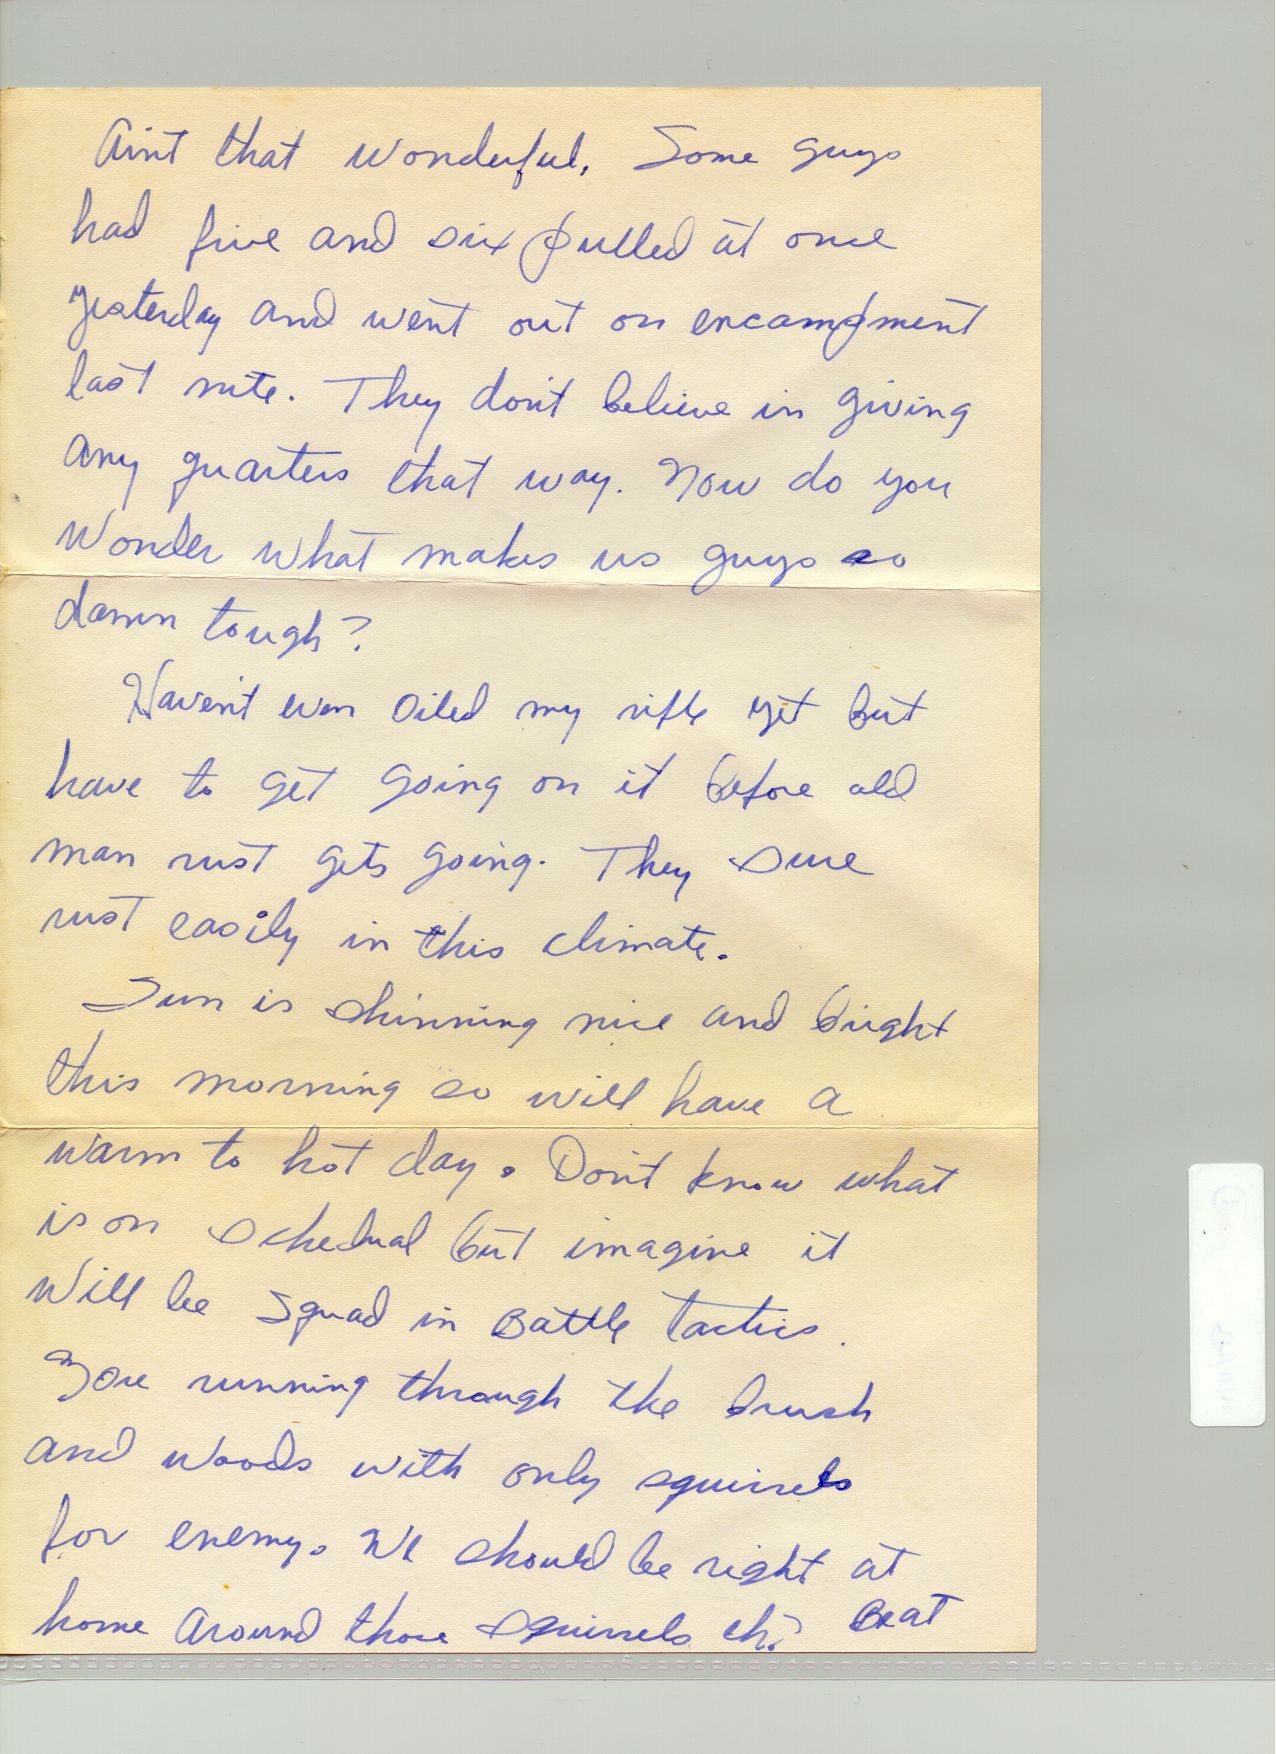 Aint that wonderful. Some guys
had five and six pulled at once
yesterday and went out on encampment
last nite. They don't believe in giving
any quarters that way. Now do you
wonder what makes us guys so
damn tough?
Haven't even oiled my rifle yet but
have to get going on it before old
man rust gets going. They sure
rust easily in this climate.
Sun is shinning nice and bright
this morning so will have a
warm to hot day. Don't know what
is on schedual but imagine it
will be squad in Battle Tactics.
You running through the brush
and woods with only squirrels
for enemy. We should be right at
home around those squirrels eh? Beat